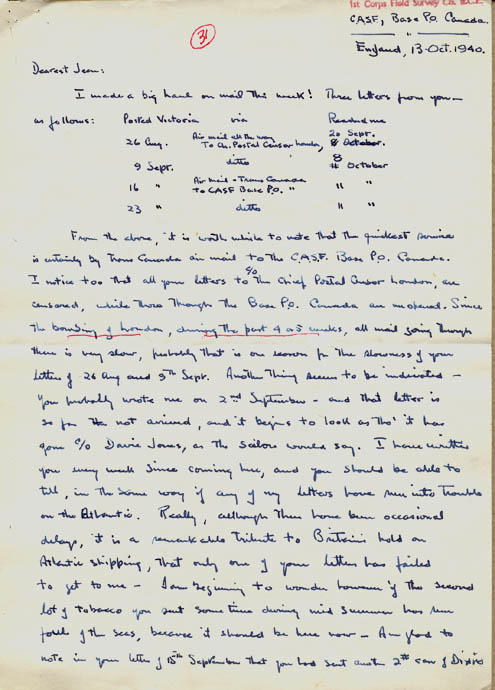 1st Corps Field Survey Co. R.C.E.
C.A.S.F., Base P.O. Canada.
"
England, 13 Oct. 1940.
31
Dearest Jean:
I made a big haul on mail this week! Three letters from you—
as follows: Posted Victoria via Reached me
26 Aug. Air mail all the way To Ch. Postal Censor London, 20 Sept. 8 October.
9 Sept. ditto 8 October
16 " Air Mail - Trans Canada to CASF Base P.O. " " "
23 " ditto " "
From the above, it is worth while to note that the quickest service
is certainly by Trans Canada air mail to the C.A.S.F. Base P.O. Canada.
I notice too that all your letters to c/o the Chief Postal Censor London, are
censored, while those through the Base P.O. Canada are not. Since
the bombing of London, during the past 4 or 5 weeks, all mail going through
there is very slow, probably that is one reason for the slowness of your
letters of 26 Aug and 9th Sept. Another thing seems to be indicated –
you probably wrote me on 2nd September – and that letter is
so far not arrived, and it begins to look as tho' it has
gone c/o Davie Jones, as the sailors would say. I have written
you every week since coming here, and you should be able to
tell, in the same way if any of my letters have run into trouble
on the Atlantic. Really, although there have been occasional
delays, it is a remarkable tribute to Britain's hold on
Atlantic shipping, that only one of your letters has failed
to get to me – I am beginning to wonder however if the second
lot of tobacco you sent sometime during mid summer has run
foul of the seas, because it should be here now – Am glad to
note in your letter of 15th September that you had sent another 2lb can of Dixie's